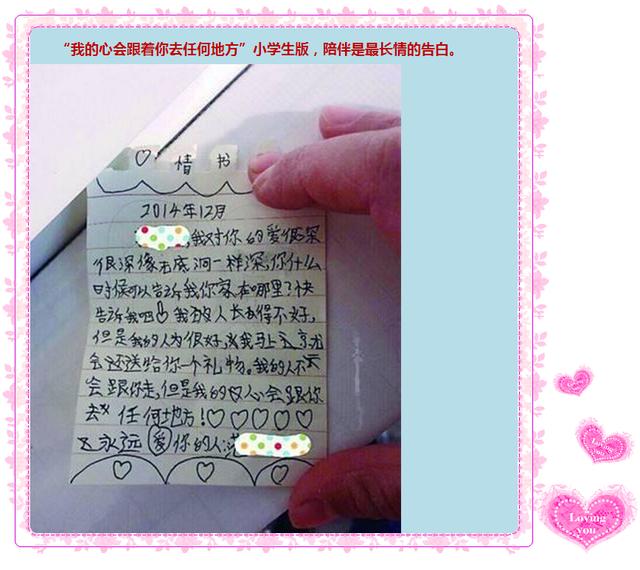 “我的心会跟着你去任何地方”小学生版，陪伴是最长情的告白。
情书
2014年12月
，我对你的爱很深
很深像无底洞一样深，你什么
时候可以告诉我你家在哪里？快
告诉我吧！我的人长得不好，
但是我的人为很好，我马上
会还送给你一个礼物。我的人不
会跟你走，但是我的心会跟你
去 任何地方！
永远爱你的人：
Loving
you
Loving
you